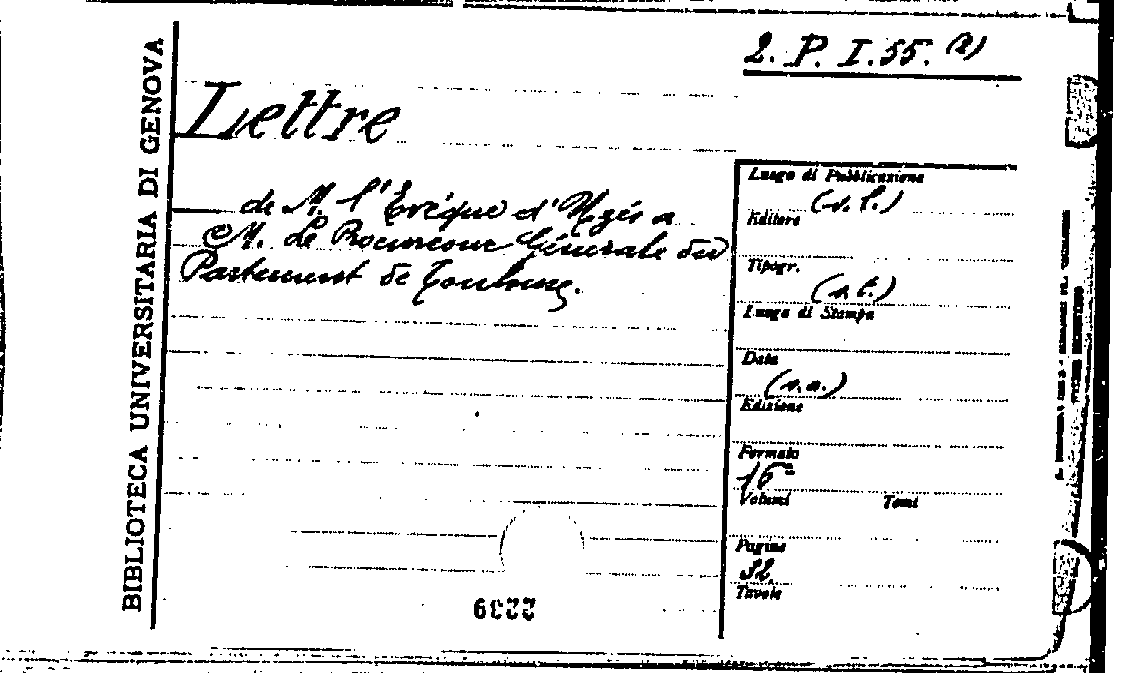 2. P. I. 55. (2)
BIBLIOTECA UNIVERSITARIA DI GENOVA
Lettre
de M. l'Evêque d'Uzès a
M. Le Procureur Générale du
Parlement de Toulouse.
Luogo di Pubblicazione
(s. l.)
Editore
Tipogr.
(s. t.)
Luogo di Stampa
Data
(s. a.)
Edizione
Formato
16°
Volumi Tomi
Pagine
32
Tavole
2239